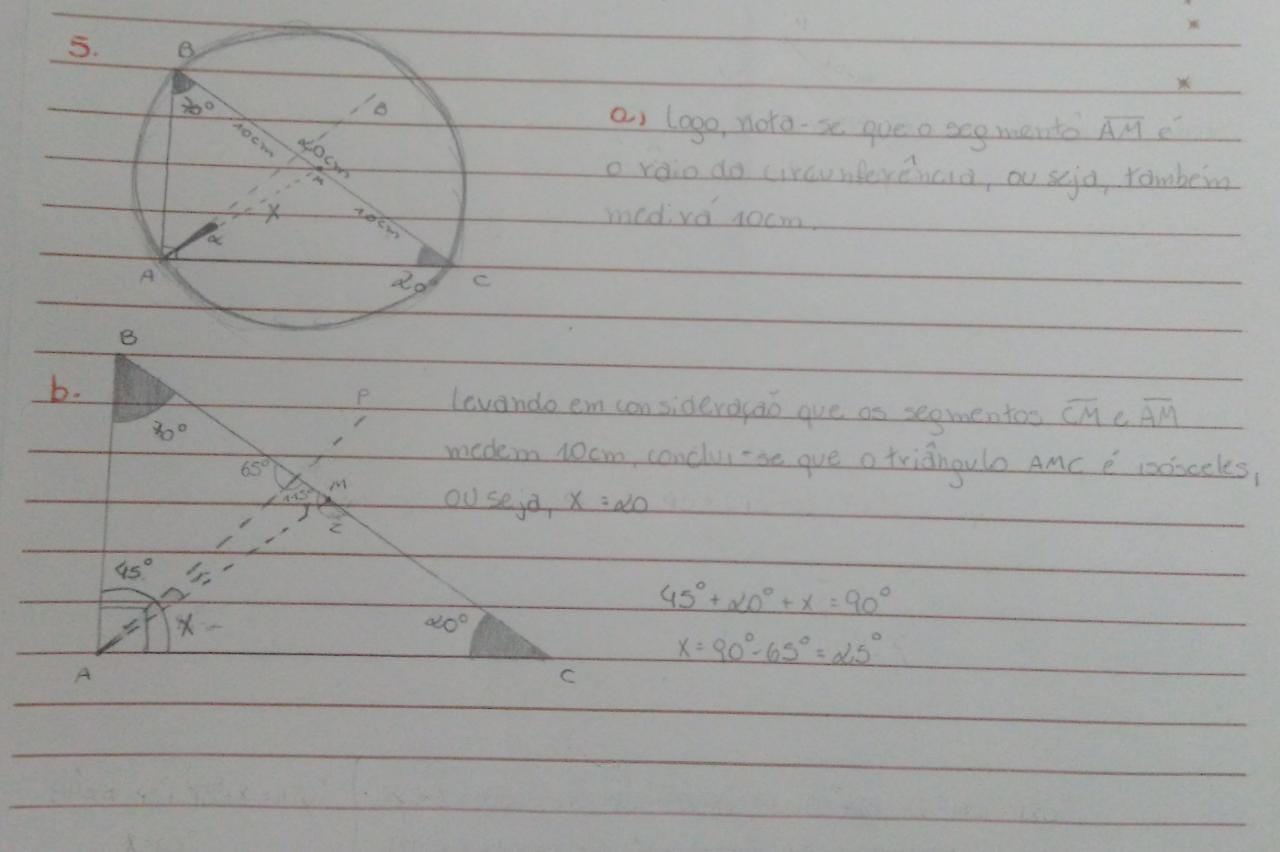 5.
B
70°
10cm
20cm
D
M
X
10cm
α
A
20°
C
a) Logo, nota-se que o segmento AM é
o raio da circunferência, ou seja, também
medirá 10cm.
b.
B
70°
P
65°
115°
M
Z
45°
X
20°
A
C
Levando em consideração que os segmentos CM e AM
medem 10cm, conclui-se que o triângulo AMC é isósceles,
ou seja, x = 20
45° + 20° + x = 90°
x = 90° - 65° = 25°